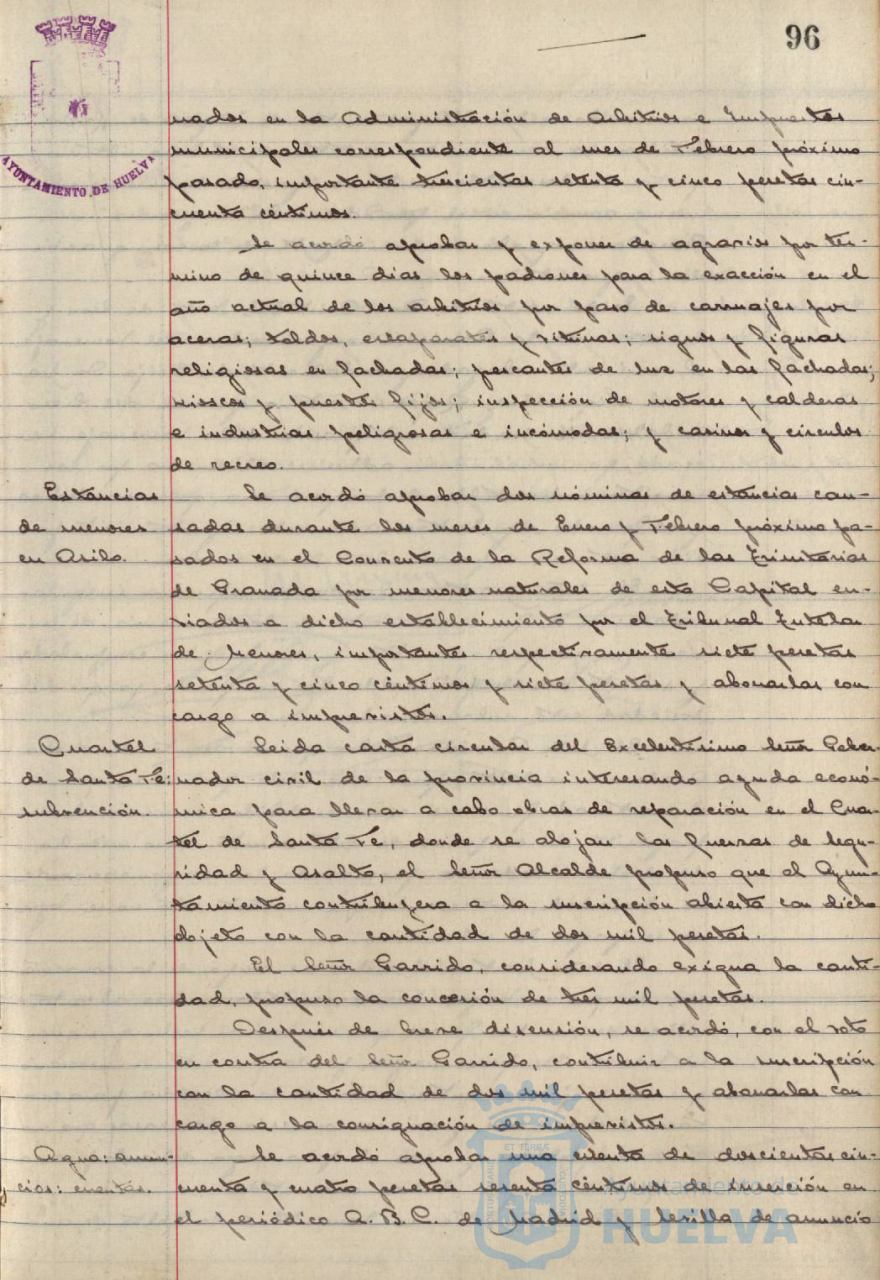 96
AYUNTAMIENTO DE HUELVA
nados en la Administración de Arbitrios e Impuestos
municipales correspondiente al mes de Febrero próximo
pasado, importante trescientas setenta y cinco pesetas cin-
cuenta céntimos.
Se acordó aprobar y exponer de agravios por tér-
mino de quince dias los padrones para la exacción en el
año actual de los arbitrios por paso de carruajes por
aceras; toldos, escaparates y vitrinas; signos y figuras
religiosas en fachadas; pescantes de luz en las fachadas;
kioscos y puestos fijos; inspección de motores y calderas
e industrias peligrosas e incómodas; y casinos y circulos
de recreo.
Estancias
de menores
en Asilo.
Se acordó aprobar dos nóminas de estancias cau-
sadas durante los meses de Enero y Febrero próximo pa-
sados en el Convento de la Reforma de las Trinitarias
de Granada por menores naturales de esta Capital en-
viados a dicho establecimiento por el Tribunal Tutelar
de Menores, importantes respectivamente siete pesetas
setenta y cinco céntimos y siete pesetas y abonarlas con
cargo a imprevistos.
Cuartel
de Santa Fe:
subvención.
Leida carta circular del Excelentisimo Señor Gober-
nador civil de la provincia interesando ayuda econó-
mica para llevar a cabo obras de reparación en el Cuar-
tel de Santa Fe, donde se alojan las fuerzas de Segu-
ridad y Asalto, el Señor Alcalde propuso que el Ayun-
tamiento contribuyera a la suscripción abierta con dicho
objeto con la cantidad de dos mil pesetas.
El Señor Garrido, considerando exigua la canti-
dad, propuso la concesión de tres mil pesetas.
Después de breve discusión, se acordó, con el voto
en contra del Señor Garrido, contribuir a la suscripción
con la cantidad de dos mil pesetas y abonarlas con
cargo a la consignación de imprevistos.
Agua: anun-
cios: cuentas.
Se acordó aprobar una cuenta de doscientas cin-
cuenta y cuatro pesetas sesenta céntimos de inserción en
el periódico A.B.C. de Madrid y Sevilla de anuncio
HUELVA